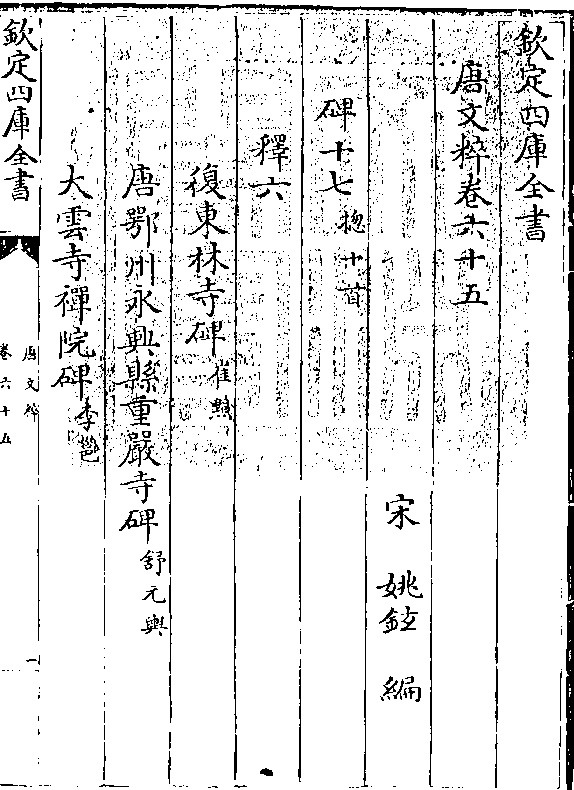 欽定四庫全書
唐文粹卷六十五
宋 姚鉉 編
碑十七 揔十首
釋六
復東林寺碑 崔黯
唐鄂州永興縣重巖寺碑 舒元輿
大雲寺禪院碑 李邕
欽定四庫全書
唐文粹
卷六十五
一